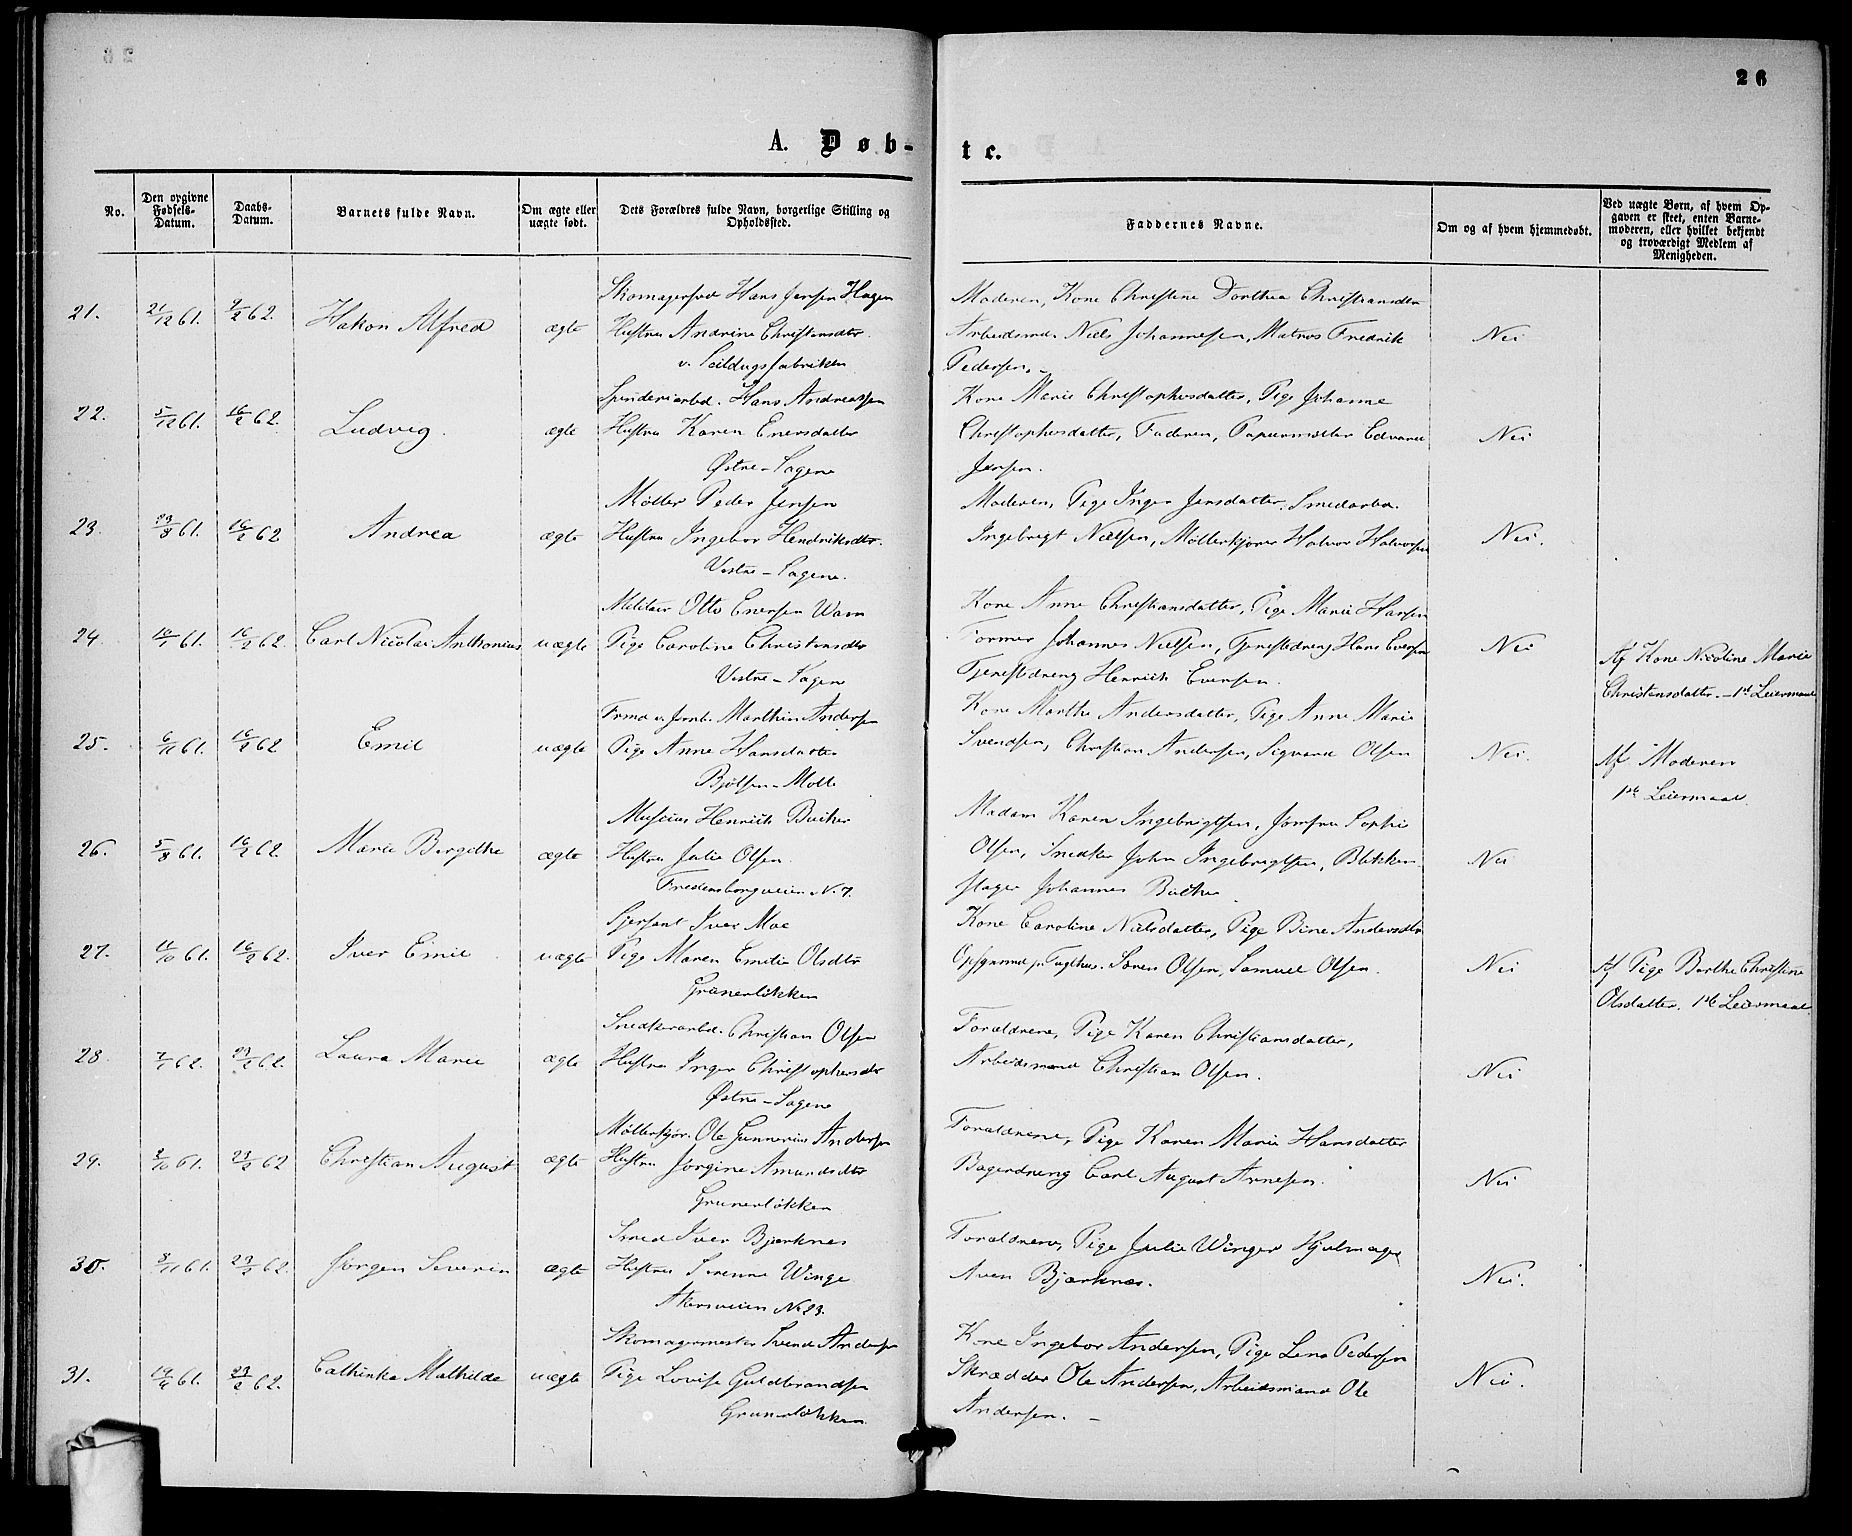 26
A. Døb-
te.
No.
Den opgivne Fødsels-Datum.
Daabs-Datum.
Barnets fulde Navn.
Om ægte eller uægte født.
Dets Forældres fulde Navn, borgerlige Stilling og Opholdssted.
Faddernes Navne.
Om og af hvem hjemmedøbt.
Ved uægte Børn, af hvem Opgaven er skeet, enten Barnemoderen, eller hvilket bekjendt og troværdigt Medlem af Menigheden.
21.
21/12 61.
9/2 62.
Hakon Alfred
ægte
Skomagersvd Hans Jensen Hagen
Hustru Andrine Christensdtr.
v. Seildugsfabriken
Moderen, Kone Christine Dorthea Christiansdtr
Arbeidsmd. Niels Johannesen, Matros Fredrik
Pedersen.
Nei
22.
5/12 61.
16/2 62.
Ludvig.
ægte
Spinderiarbd. Hans Andreassen
Hustru Karen Enersdatter
Østre-Sagene
Kone Marie Christophersdatter, Pige Johanne
Christophersdatter, Faderen, Edvard
Jensen.
Nei
23.
23/8 61.
16/2 62
Andrea
ægte
Møller Peder Jensen
Hustru Ingebor Hendriksdtr.
Vestre-Sagene.
Moderen, Pige Inger Jensdatter, Smedarbd.
Ingebrigt Nielsen, Møllerkjører Halvor Halvorsen
Nei.
24.
61.
16/2 62.
Carl Nicolai Anthonius
uægte
Militair Otto Enersen Warn
Pige Caroline Christensdtr
Vestre-Sagene
Kone Anne Christiansdatter, Pige Marie Hansen
Former Johannes Nielsen, Tjenestdreng Hans Eversen
Tjenestdreng Henrik Eversen.
Nei
Af Kone Nicoline Marie
Christensdatter. - 1ste Leiermaal
25.
6/11 61.
16/2 62
Emil
uægte
Marthin Andersen
Pige Anne Hansdatter
Bjølsen-Mølle
Kone Marthe Andersdatter, Pige Anne Marie
Svendsen, Christian Andersen, Sigvard Olsen
Nei.
Af Moderen
1ste Leiermaal.
26.
5/8 61.
16/2 62.
Marie Birgithe
ægte
Musicus Henrik
Hustru Julie Olsen.
Fredensborgveien N. 7.
Madam Karen Ingebrigtsen, Jomfru Sophie
Olsen, Snedker John Ingebrigtsen, Blikken-
slager Johannes
Nei
27.
11/10 61.
16/2 62.
Iver Emil
uægte
Sjersant Iver Moe
Pige Maren Emilie Olsdtr
Grünerløkken
Kone Caroline Nielsdatter, Pige Bine Andersdtr
Opsynsmd Tugthus. Søren Olsen, Samuel Olsen.
Nei
Af Pige Berthe Christine
Olsdatter. 1ste Leiermaal.
28
7/1 62.
23/2 62.
Laura Marie
ægte
Snedkerarbd. Christian Olsen
Hustru Inger Christophersdtr
Østre-Sagene
Forældrene, Pige Karen Christiansdatter,
Arbeidsmand Christian Olsen.
Nei
29.
2/10 61.
23/2 62
Christian August
ægte
Møllerkjør. Ole Gunnerius Andersen
Hustru Jørgine Amundsdtr
Grünerløkken
Forældrene, Pige Karen Marie Hansdatter
Bagerdreng Carl August Arnesen.
Nei
30.
8/11 61.
23/2 62.
Jørgen Severin
ægte
Smed Iver Bjerknes
Hustru Sirenne Winge
Akersveien No 23.
Forældrene, Pige Julie Winger Hjulmager
Aven Bjerknes.
Nei.
31.
19/6 61.
23/2 62.
Cathinka Mathilde
uægte
Skomagermester Svend Andersen
Pige Lovise Guldbrandsen
Grünerløkken
Kone Ingebor Andersen, Pige Lena Pedersen
Skrædder Ole Andersen, Arbeidsmand Ole
Andersen. -
Nei.